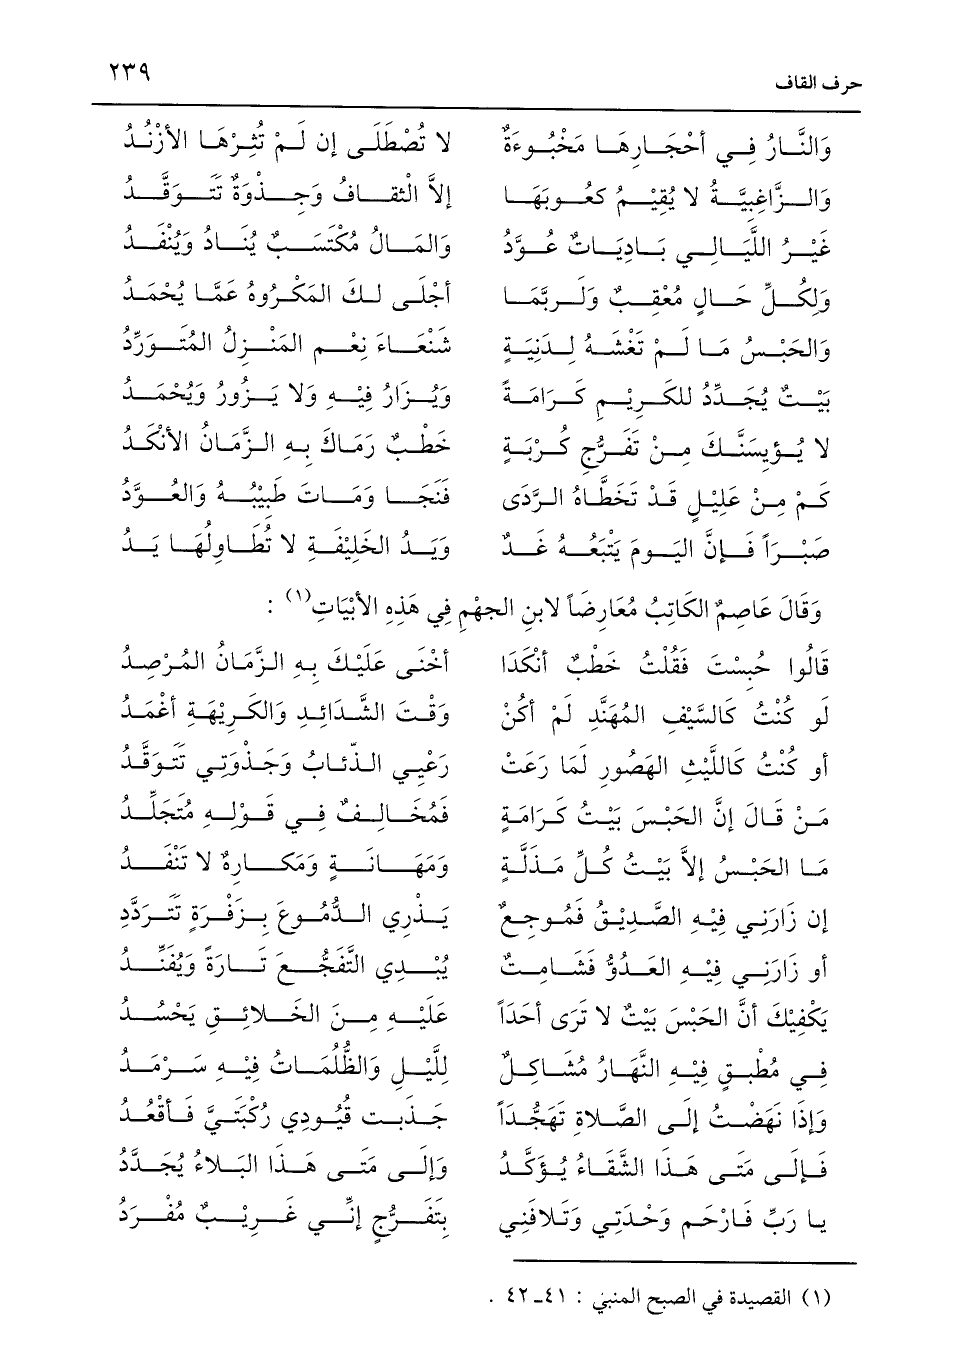 حرف القاف ٢٣٩
وَالنَّارُ فِي أَحْجَارِهَا مَخْبُوءَةٌ لا تُصْطَلَى إن لَمْ تُثِرْهَا الأَزْنُدُ
وَالزَّاغِبِيَّةُ لا يُقِيمُ كُعُوبَهَا إلاَّ الثِّقَافُ وَجِذْوَةٌ تَتَوَقَّدُ
غِيَرُ اللَّيَالِي بَادِيَاتٌ عُوَّدُ وَالمَالُ مُكْتَسَبٌ يُبَادُ وَيُنْفَدُ
وَلِكُلِّ حَالٍ مُعْقِبٌ وَلَرُبَّمَا أَجْلَى لَكَ المَكْرُوهُ عَمَّا يُحْمَدُ
وَالحَبْسُ مَا لَمْ تَغْشَهُ لِدَنِيَّةٍ شَنْعَاءَ نِعْمَ المَنْزِلُ المُتَوَرَّدُ
بَيْتٌ يُجَدِّدُ لِلكَرِيْمِ كَرَامَةً وَيُزَارُ فِيْهِ وَلا يَزُورُ وَيُحْمَدُ
لا يُؤيِسَنَّكَ مِنْ تَفَرُّجِ كُرْبَةٍ خَطْبٌ رَمَاكَ بِهِ الزَّمَانُ الأَنْكَدُ
كَمْ مِنْ عَلِيْلٍ قَدْ تَخَطَّاهُ الرَّدَى فَنَجَا وَمَاتَ طَبِيْبُهُ وَالعُوَّدُ
صَبْراً فَإِنَّ اليَومَ يَتْبَعُهُ غَدٌ وَيَدُ الخَلِيْفَةِ لا تُطَاوِلُهَا يَدُ
وَقَالَ عَاصِمٌ الكَاتِبُ مُعَارِضاً لابنِ الجهْمِ فِي هَذِهِ الأَبْيَاتِ(١) :
قَالُوا حُبِسْتَ فَقُلْتُ خَطْبٌ أنْكَدَا أَخْنَى عَلَيْكَ بِهِ الزَّمَانُ المُرْصِدُ
لَو كُنْتُ كَالسَّيْفِ المُهَنَّدِ لَمْ أَكُنْ وَقْتَ الشَّدَائِدِ وَالكَرِيْهَةِ أُغْمَدُ
أو كُنْتُ كَاللَّيْثِ الهَصُورِ لَمَا رَعَتْ رَعْيِي الذِّئَابُ وَجَذْوَتِي تَتَوَقَّدُ
مَنْ قَالَ إنَّ الحَبْسَ بَيْتُ كَرَامَةٍ فَمُخَالِفٌ فِي قَوْلِهِ مُتَجَلِّدُ
مَا الحَبْسُ إلاَّ بَيْتُ كُلِّ مَذَلَّةٍ وَمَهَانَةٍ وَمَكَارِهٌ لا تَنْفَدُ
إن زَارَنِي فِيْهِ الصَّدِيْقُ فَمُوجِعٌ يَذْرِي الدُّمُوعَ بِزَفْرَةٍ تَتَرَدَّدِ
أو زَارَنِي فِيْهِ العَدُوُّ فَشَامِتٌ يُبْدِي التَّفَجُّعَ تَارَةً وَيُفَنِّدُ
يَكْفِيْكَ أنَّ الحَبْسَ بَيْتٌ لا تَرَى أَحَداً عَلَيْهِ مِنَ الخَلائِقِ يَحْسُدُ
فِي مُطْبِقٍ فِيْهِ النَّهَارُ مُشَاكِلٌ لِلَّيْلِ وَالظُّلُمَاتُ فِيْهِ سَرْمَدُ
وَإذَا نَهَضْتُ إلَى الصَّلاةِ تَهَجُّداً جَذَبت قُيُودِي رُكْبَتِيَّ فَأَقْعُدُ
فَإلَى مَتَى هَذَا الشَّقَاءُ يُؤَكَّدُ وَإلَى مَتَى هَذَا البَلاءُ يُجَدَّدُ
يا رَبِّ فَارْحَم وَحْدَتِي وَتَلافَنِي بِتَفَرُّجٍ إنِّي غَرِيْبٌ مُفْرَدُ
(١) القصيدة في الصبح المنبي : ٤١ـ٤٢ .